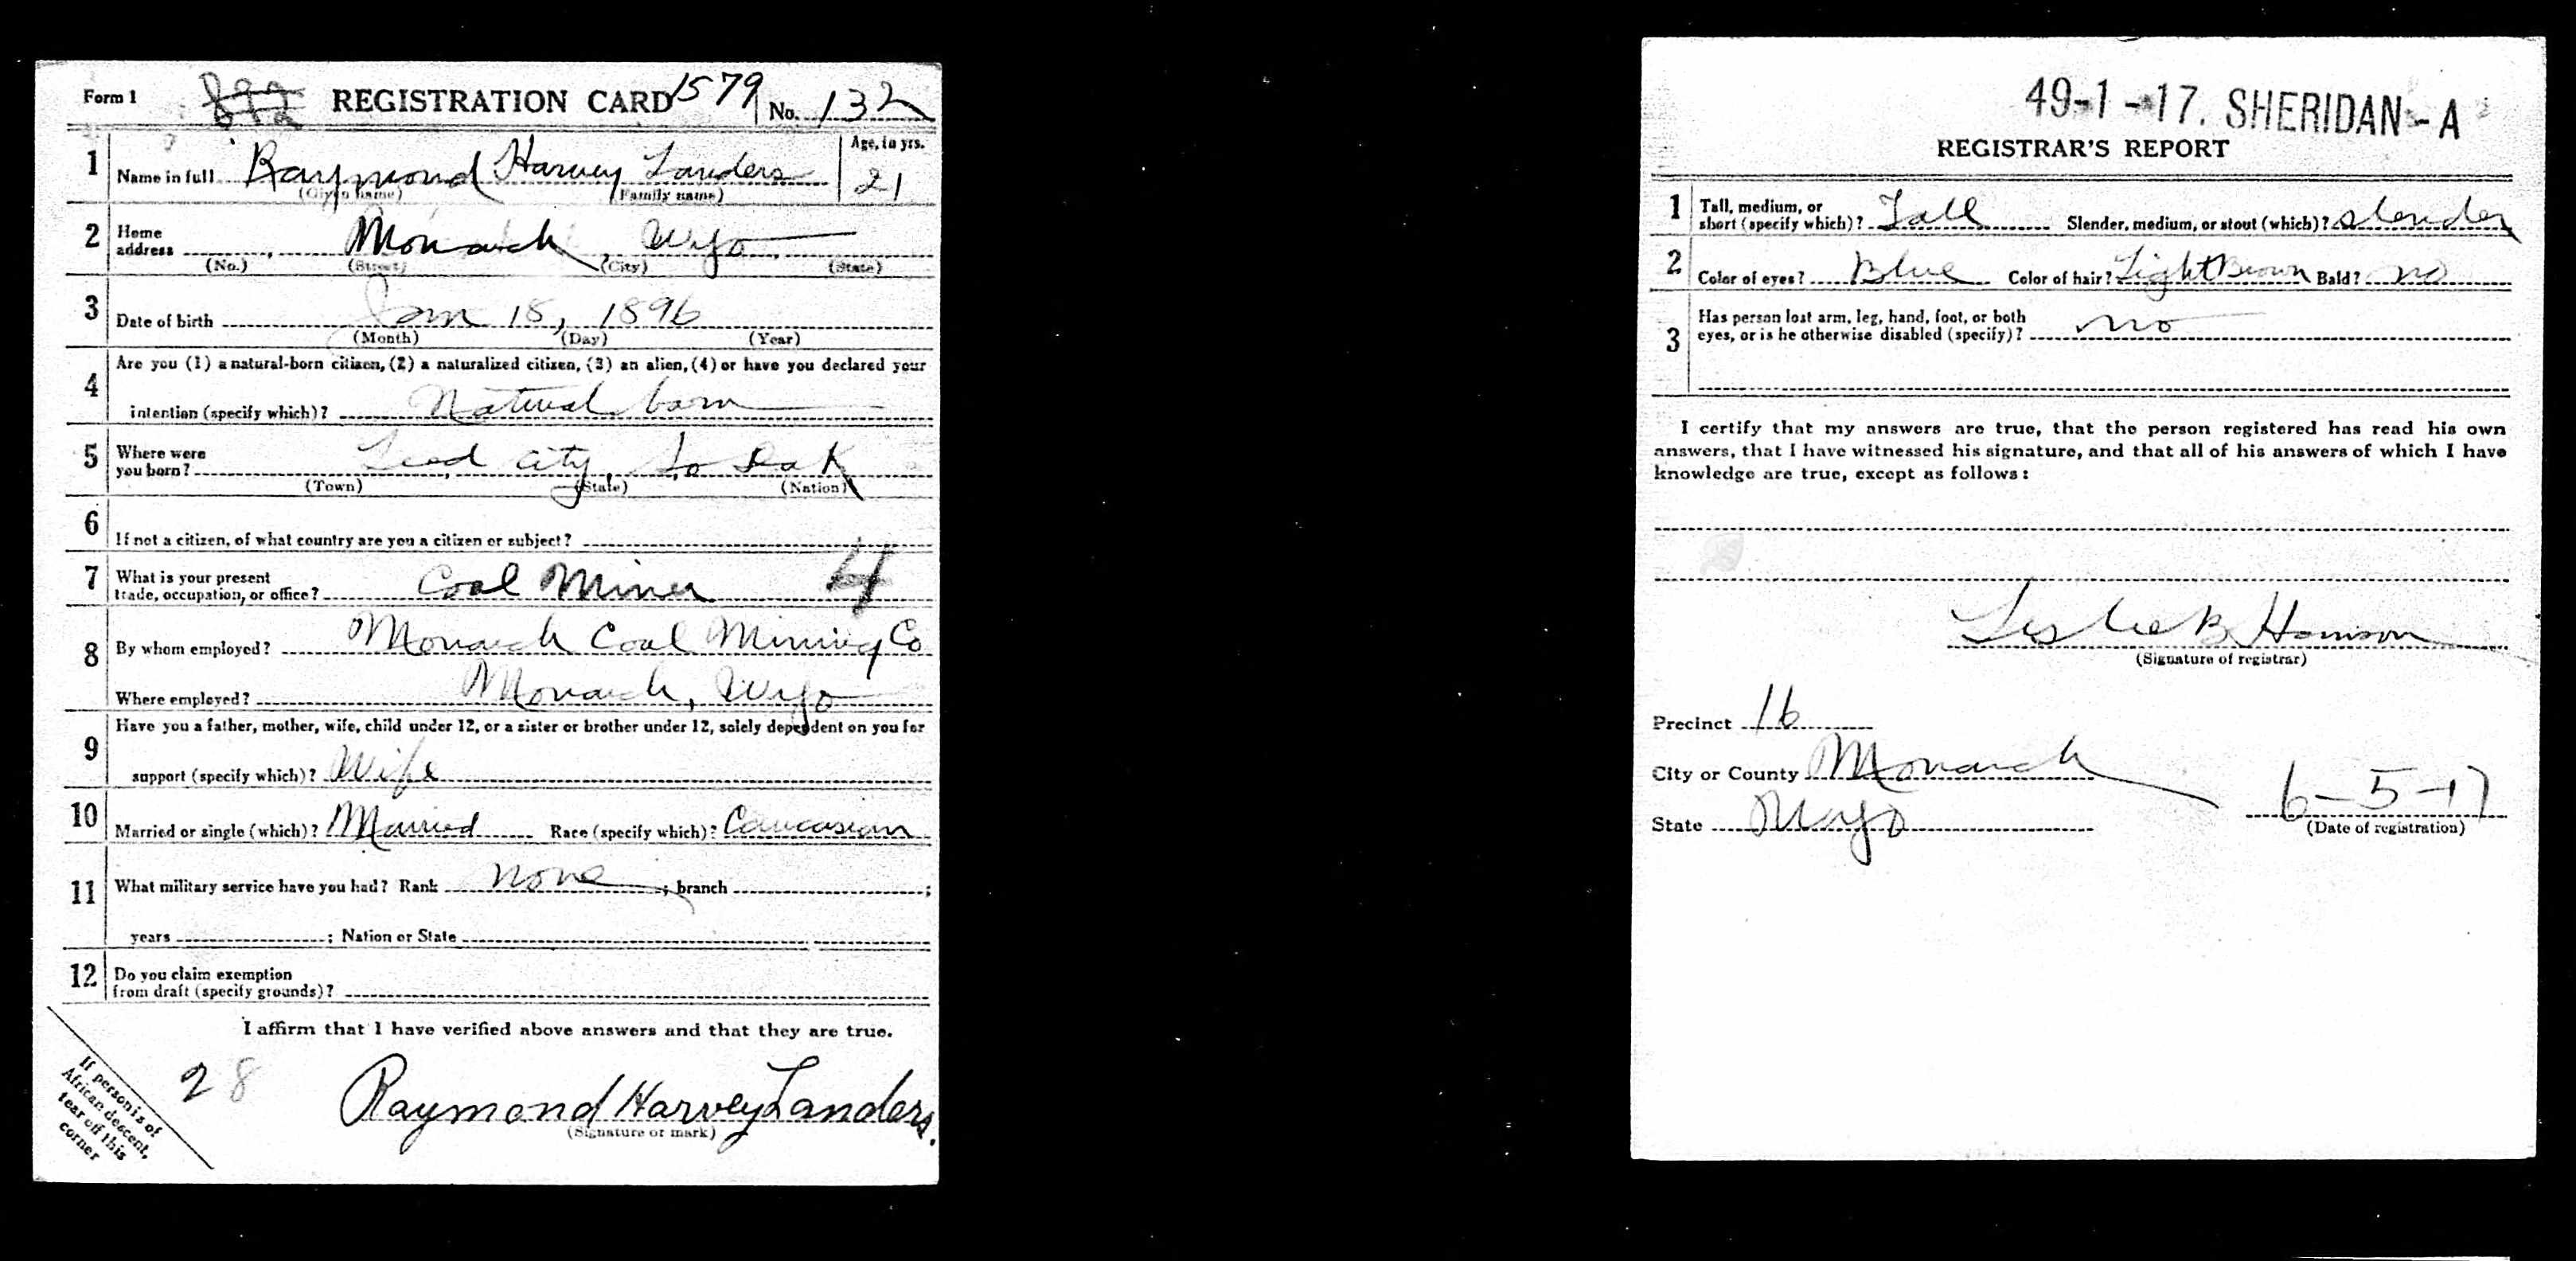 Form 1 REGISTRATION CARD 1579 No. 132
1 Name in full Raymond Harvey Landers Age, in yrs. 21
(Given name) (Family name)
2 Home address Monarch, Wyo
(No.) (Street) (City) (State)
3 Date of birth Jan 18, 1896
(Month) (Day) (Year)
4 Are you (1) a natural-born citizen, (2) a naturalized citizen, (3) an alien, (4) or have you declared your
intention (specify which)? Natural born
5 Where were you born? Lead City, So Dak
(Town) (State) (Nation)
6 If not a citizen, of what country are you a citizen or subject?
7 What is your present trade, occupation, or office? Coal Miner 4
8 By whom employed? Monarch Coal Mining Co
Where employed? Monarch, Wyo
9 Have you a father, mother, wife, child under 12, or a sister or brother under 12, solely dependent on you for
support (specify which)? Wife
10 Married or single (which)? Married Race (specify which)? Caucasian
11 What military service have you had? Rank None ; branch ;
years ; Nation or State
12 Do you claim exemption from draft (specify grounds)?
I affirm that I have verified above answers and that they are true.
28 Raymond Harvey Landers.
(Signature or mark)
If person is of
African descent,
tear off this
corner
49-1-17. SHERIDAN-A
REGISTRAR'S REPORT
1 Tall, medium, or short (specify which)? Tall Slender, medium, or stout (which)? Slender
2 Color of eyes? Blue Color of hair? Light Brown Bald? no
3 Has person lost arm, leg, hand, foot, or both eyes, or is he otherwise disabled (specify)? no
I certify that my answers are true, that the person registered has read his own
answers, that I have witnessed his signature, and that all of his answers of which I have
knowledge are true, except as follows:
Leslie B Harrison
(Signature of registrar)
Precinct 16
City or County Monarch
State Wyo 6-5-17
(Date of registration)